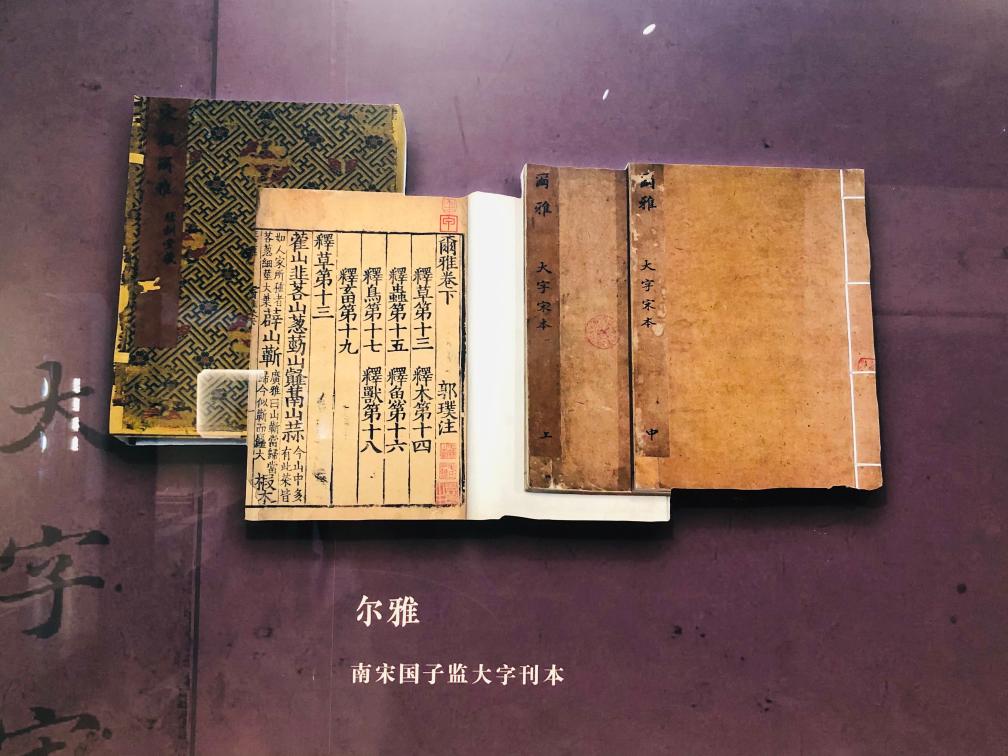 爾雅
爾雅卷下 郭璞注
釋草第十三 釋木第十四
釋蟲第十五 釋魚第十六
釋鳥第十七 釋獸第十八
釋畜第十九
釋草第十三
藿山韭茖山葱葝山䪥蒚山蒜今山中多有此菜皆
如人家所種者茖葱細莖大葉薜山蘄廣雅曰山蘄當歸當歸今似蘄而麤大椴木
爾雅 大字宋本 上
爾雅 大字宋本 中
大字
尔雅
南宋国子监大字刊本